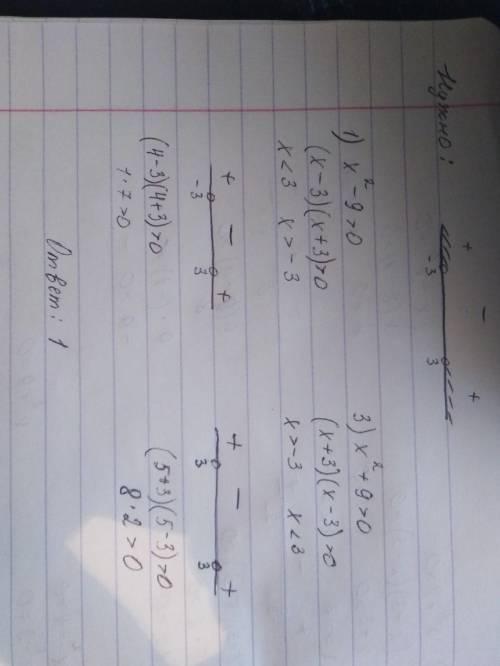 Нужно:
+ - +
-3 3
1) x² - 9 > 0
(x - 3)(x + 3) > 0
x < 3 x > -3
+ - +
-3 3
(4-3)(4+3) > 0
1 · 7 > 0
3) x² + 9 > 0
(x + 3)(x - 3) > 0
x > -3 x < 3
+ - +
3 3
(5+3)(5-3) > 0
8 · 2 > 0
Ответ: 1